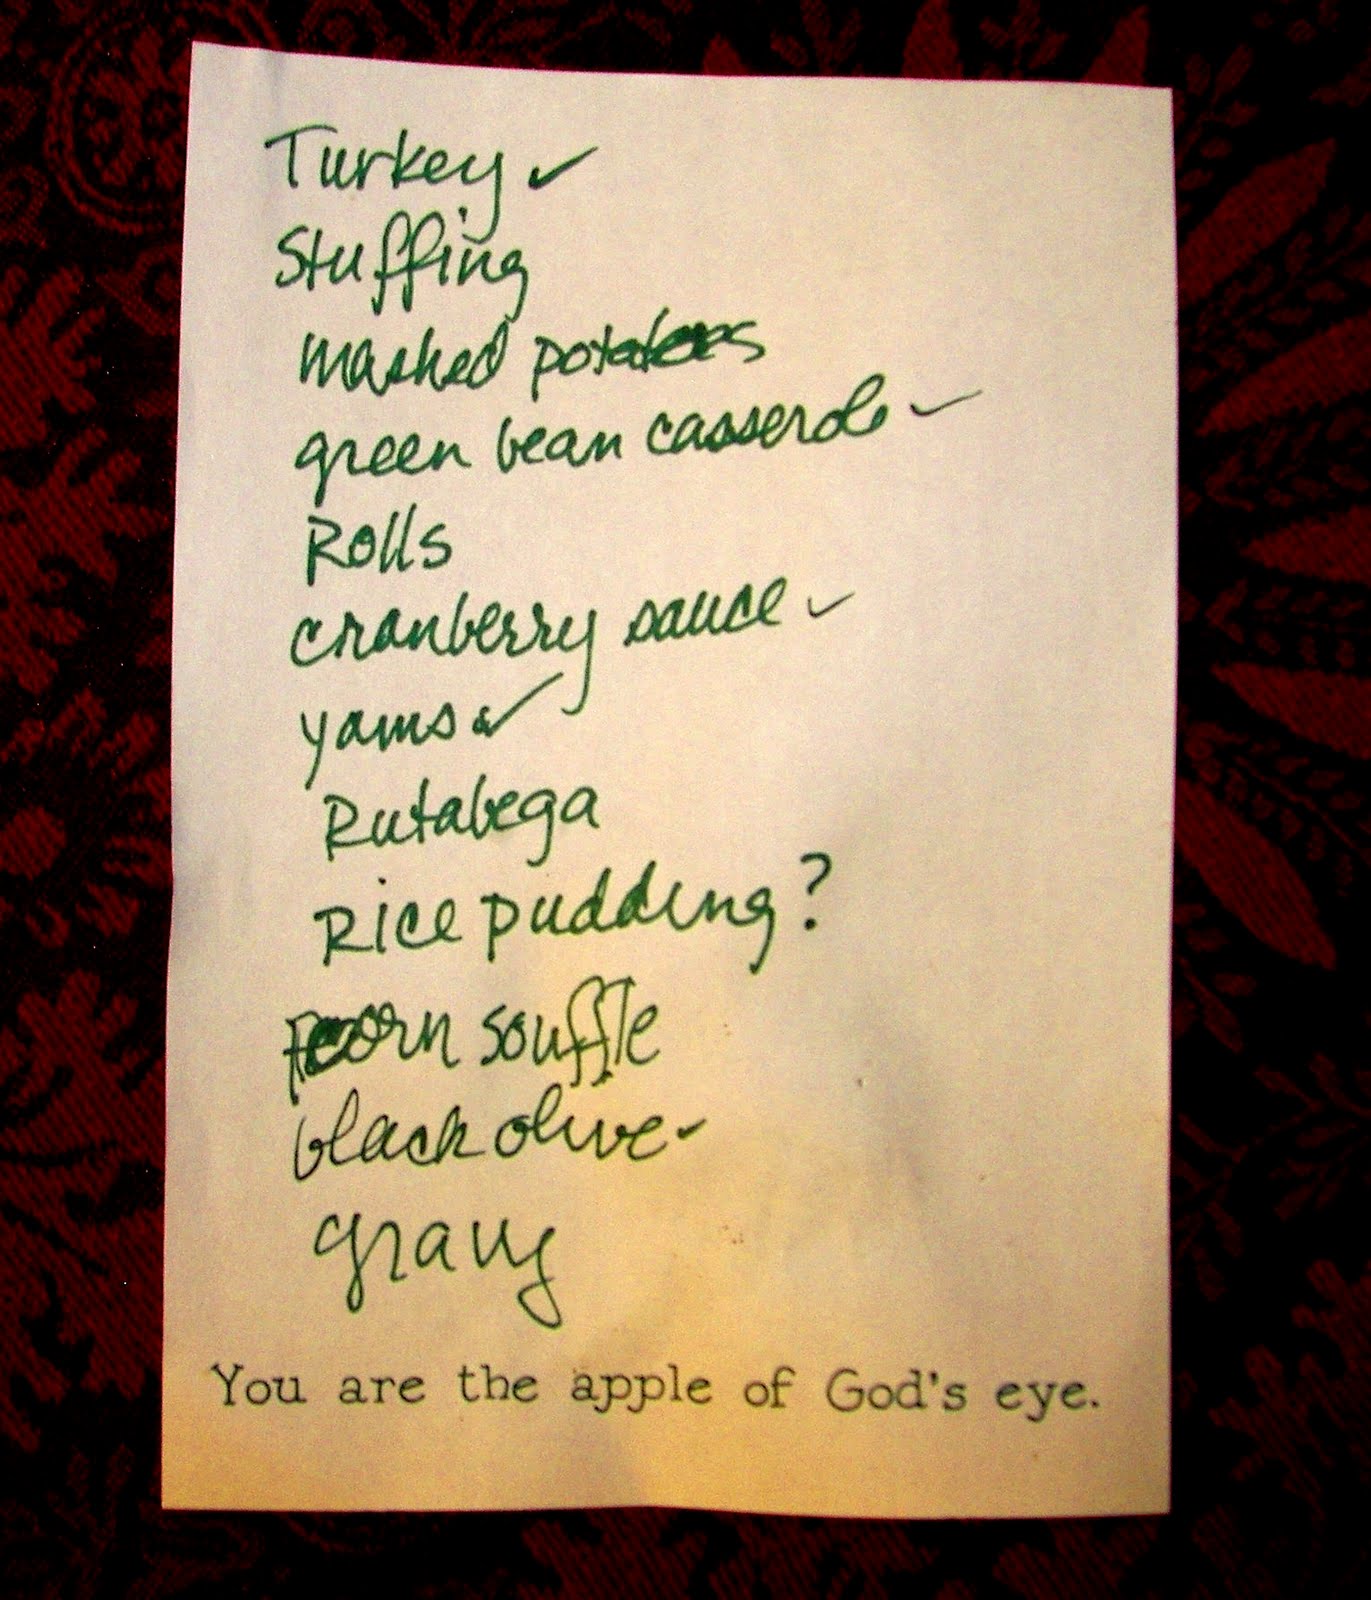 Turkey ✓
Stuffing
mashed potatoes
green bean casserole ✓
Rolls
cranberry sauce ✓
yams ✓
Rutabega
Rice pudding ?
corn souffle
black olive ✓
gravy
You are the apple of God's eye.